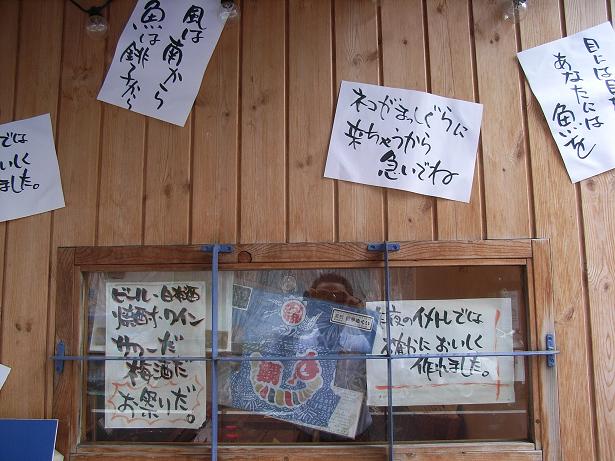 風は南から
魚は銚子から
ネコがまっしぐらに
来ちゃうから
急いでね
目には目
あなたには
魚いを
では
いしく
ました。
ビール・日本酒
焼酎・ワイン
サワーだ
梅酒に
お祭りだ。
昨夜のイメトレでは
確かにおいしく
作れました。